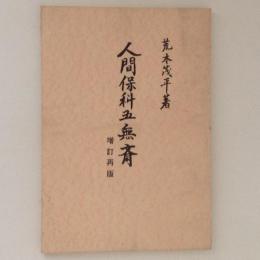 荒木茂平著
人間保科五無斎
増訂再版